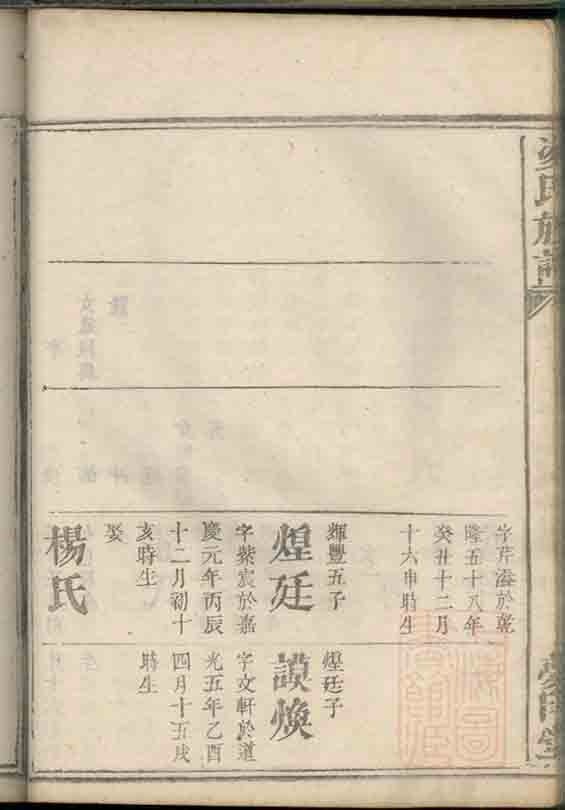 氏族譜
字芹濤於乾
隆五十八年
癸丑十二月
十六申時生
輝豐五子
煌廷
字紫宸於嘉
慶元年丙辰
十二月初十
亥時生
娶
楊氏
煌廷子
謨煥
字文軒於道
光五年乙酉
四月十五戌
時生